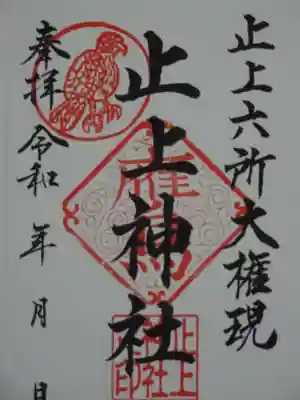 止上六所大権現
止上神社
奉拝 令和 年 月 日
止上
神社
之印